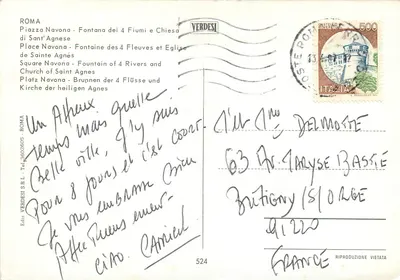 ROMA
Piazza Navona - Fontana dei 4 Fiumi e Chiesa
di Sant'Agnese
Place Navona - Fontaine des 4 Fleuves et Eglise
de Sainte Agnes
Square Navona - Fountain of 4 Rivers and
Church of Saint Agnes
Platz Navona - Brunnen der 4 Flüsse und
Kirche der heiligen Agnes
VERDESI
500
ITALIA
Un Affreux
temps mais quelle
Belle ville, J'y suis
Pour 8 jours et c'est court.
Je vous embrasse bien
Affectueusement
Ciao.
Mr et Mme DELMOTTE
63 Av. Maryse BASTIE
Bretigny /S/ ORGE
91220
FRANCE
Ediz. VERDESI S.R.L. - ROMA
524
RIPRODUZIONE VIETATA